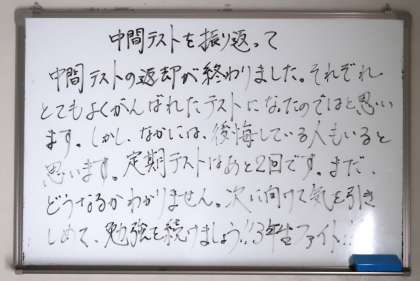 中間テストを振り返って
中間テストの返却が終わりました。それぞれ
とてもよくがんばれたテストになったのではと思い
ます。しかし、なかには、後悔している人もいると
思います。定期テストはあと2回です。まだ、
どうなるかわかりません。次に向けて気を引き
しめて、勉強を続けましょう!!3年生ファイト!!